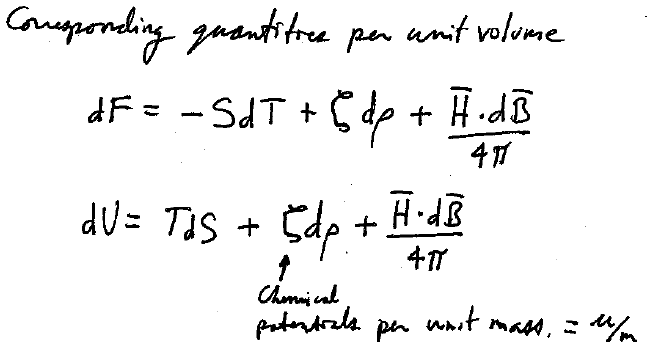 Corresponding quantities per unit volume
dF = - SdT + ζ dρ + H̄ · dB̄ / 4π
dU = TdS + ζdρ + H̄ · dB̄ / 4π
↑
Chemical
potentials per unit mass. = μ/m